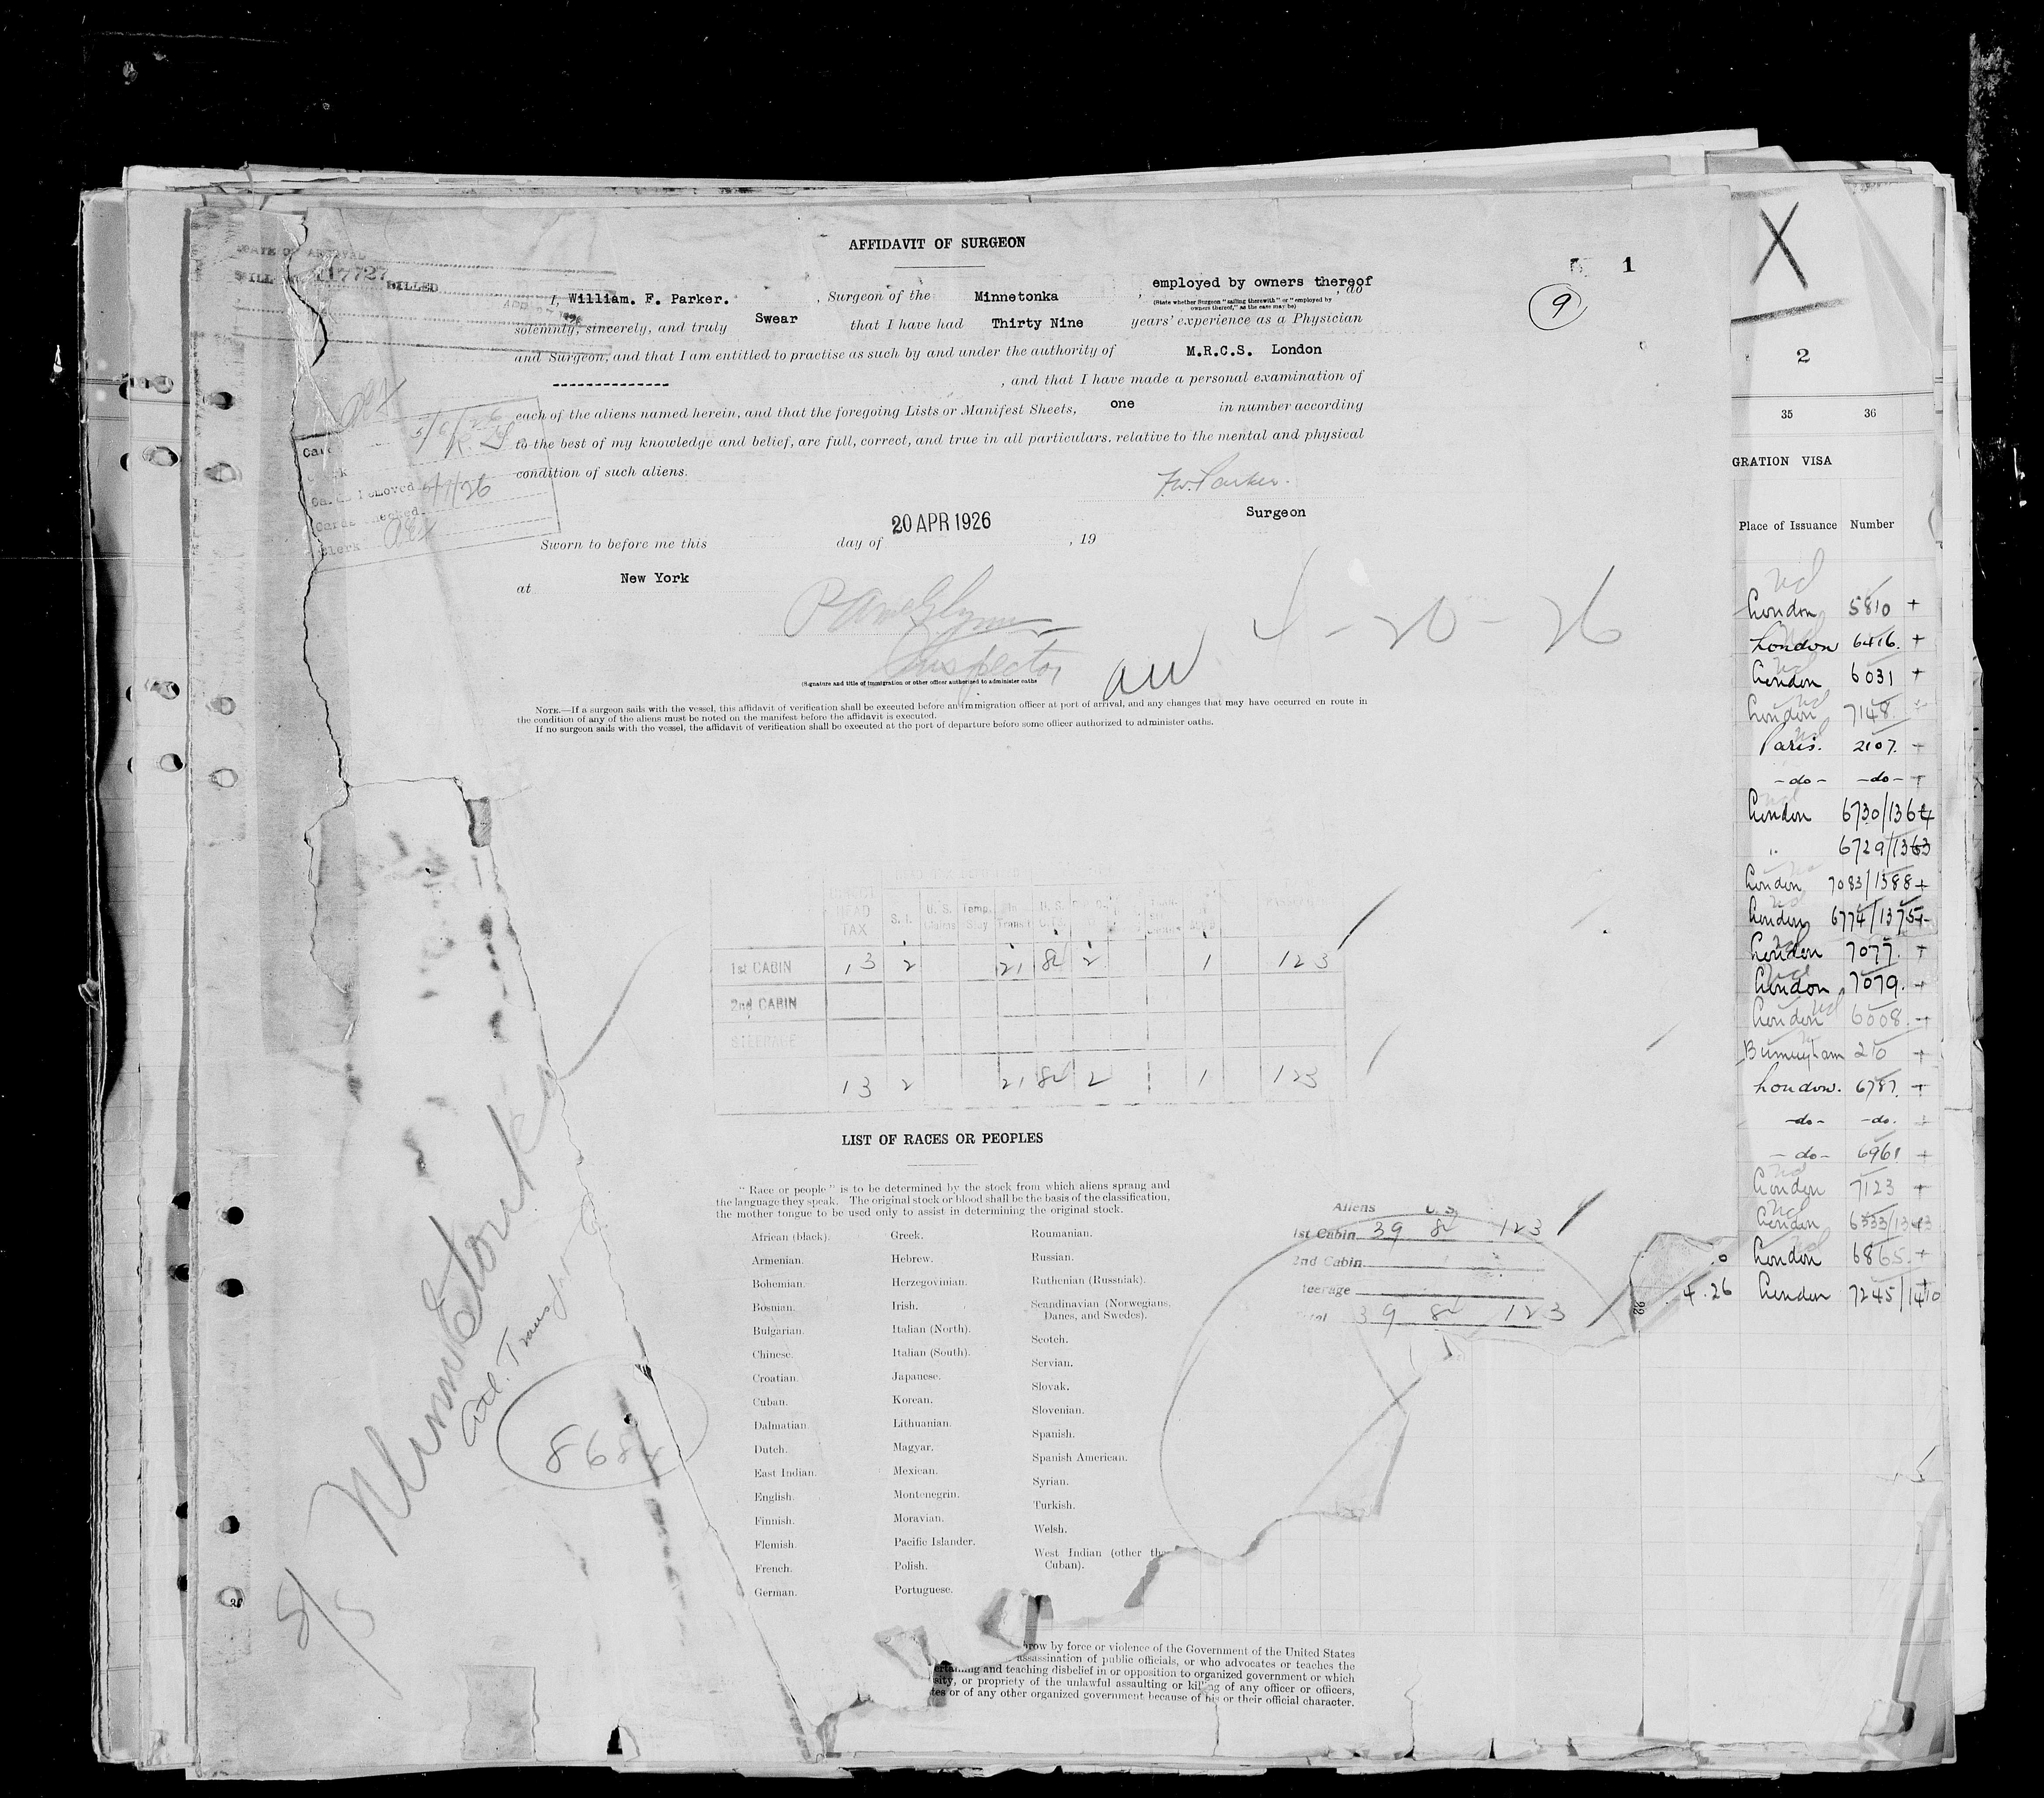 AFFIDAVIT OF SURGEON
1
9
17727
BILLED
I, William. F. Parker. , Surgeon of the Minnetonka , employed by owners thereof , do
(State whether Surgeon "sailing therewith" or "employed by owners thereof," as the case may be)
solemnly, sincerely, and truly Swear that I have had Thirty Nine years' experience as a Physician
and Surgeon, and that I am entitled to practise as such by and under the authority of M.R.C.S. London
--------------- , and that I have made a personal examination of
each of the aliens named herein, and that the foregoing Lists or Manifest Sheets, one in number according
to the best of my knowledge and belief, are full, correct, and true in all particulars, relative to the mental and physical
condition of such aliens.
F.W. Parker.
Surgeon
20 APR 1926
Sworn to before me this day of , 19
at New York
Inspector
4-20-26
(Signature and title of immigration or other officer authorized to administer oaths
NOTE.—If a surgeon sails with the vessel, this affidavit of verification shall be executed before an immigration officer at port of arrival, and any changes that may have occurred en route in
the condition of any of the aliens must be noted on the manifest before the affidavit is executed.
If no surgeon sails with the vessel, the affidavit of verification shall be executed at the port of departure before some officer authorized to administer oaths.
HEAD TAX S. I. U. S. Temp. Stay Transit
1st CABIN 13 2 21 82 2 1 123
2nd CABIN
STEERAGE
13 2 21 82 2 1 123
LIST OF RACES OR PEOPLES
"Race or people" is to be determined by the stock from which aliens sprang and
the language they speak. The original stock or blood shall be the basis of the classification,
the mother tongue to be used only to assist in determining the original stock.
African (black).
Armenian.
Bohemian.
Bosnian.
Bulgarian.
Chinese.
Croatian.
Cuban.
Dalmatian
Dutch.
East Indian.
English.
Finnish.
Flemish.
French.
German.
Greek.
Hebrew.
Herzegovinian.
Irish.
Italian (North).
Italian (South).
Japanese.
Korean.
Lithuanian.
Magyar.
Mexican.
Montenegrin.
Moravian.
Pacific Islander.
Polish.
Portuguese.
Roumanian.
Russian.
Ruthenian (Russniak).
Scandinavian (Norwegians,
Danes, and Swedes).
Scotch.
Servian.
Slovak.
Slovenian.
Spanish.
Spanish American.
Syrian.
Turkish.
Welsh.
West Indian (other tha
Cuban).
Aliens U.S.
1st Cabin 39 82 123
2nd Cabin
teerage
39 82 123
Minnetonka
Atl. Transport
8682
5/5
brow by force or violence of the Government of the United States
assassination of public officials, or who advocates or teaches the
and teaching disbelief in or opposition to organized government or which
sity, or propriety of the unlawful assaulting or killing of any officer or officers,
tes or of any other organized government because of his or their official character.
X
2
35 36
GRATION VISA
Place of Issuance Number
London 5810 +
London 6416. +
London 6031 +
London 7148.
Paris. 2107. +
-do- -do- +
London 6730/1364
" 6729/1363
London 7083/1388 +
London 6774/1375 +
London 7077. +
London 7079. +
London 6008. +
Birmingham 210 +
London. 6787. +
-do- -do. +
-do- 6961 +
London 7123 +
London 6333/1343
London 6865. +
4.26 London 7245/1410